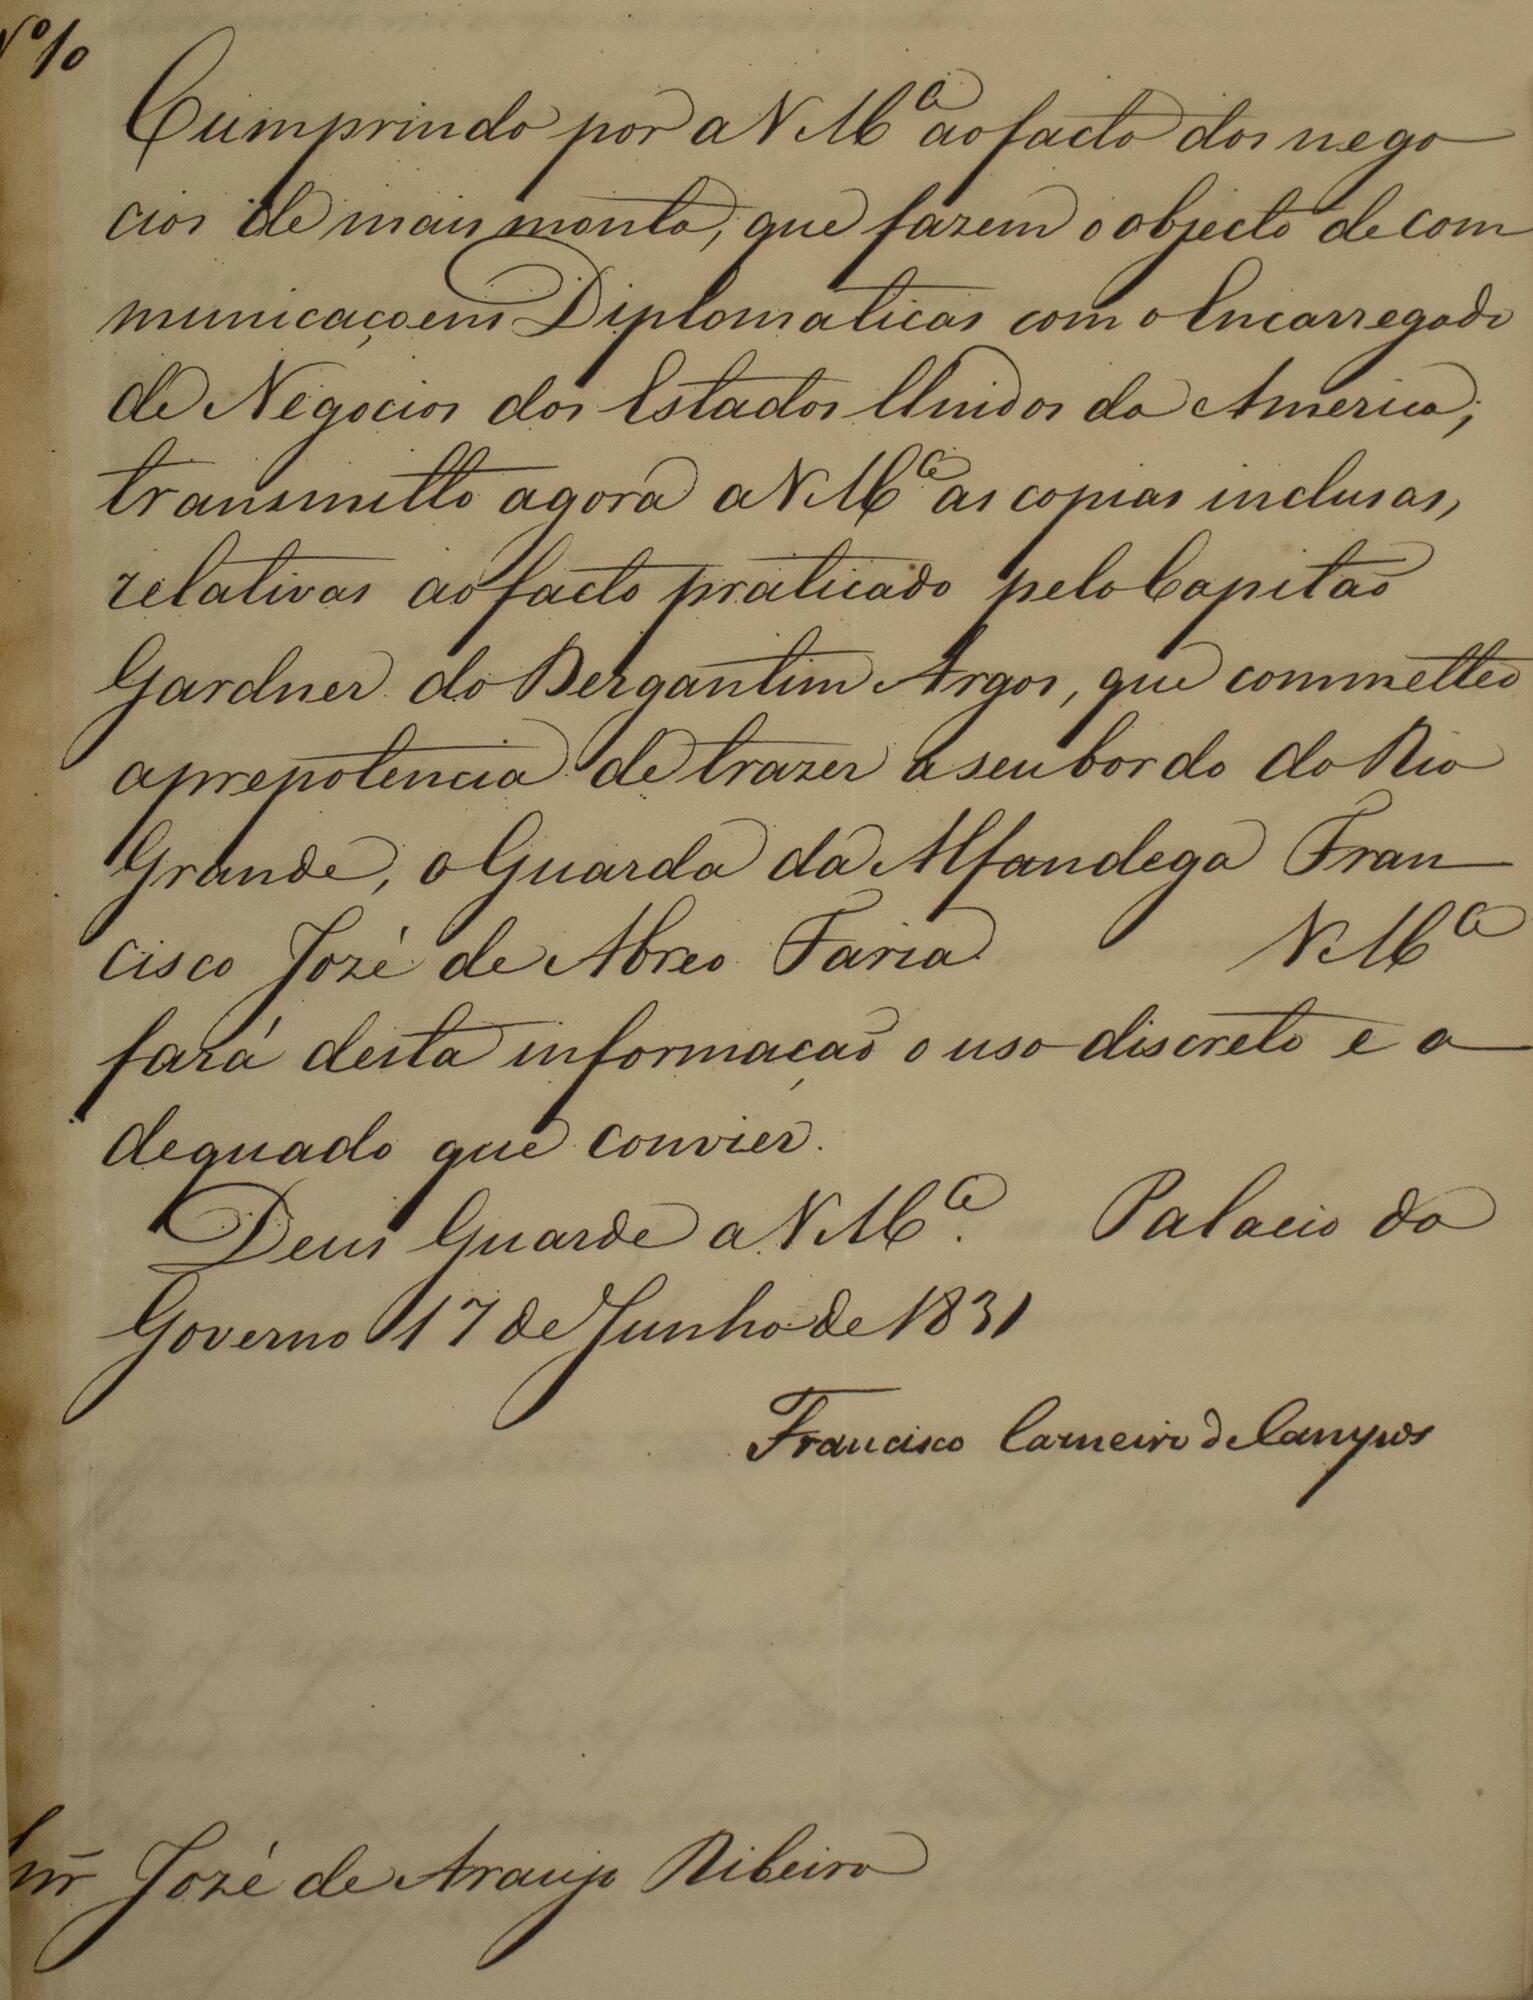 Nº 10
Cumprindo por a V Mce ao facto dos nego
cios de mais monta, que fazem o objecto de com
municaçoens Diplomaticas com o Encarregado
de Negocios dos Estados Unidos da America;
transmitto agora a V Mce as copias inclusas,
relativas ao facto praticado pelo Capitaõ
Gardner do Bergantim Argos, que commetteo
a prepotencia de trazer a seu bordo do Rio
Grande, o Guarda da Alfandega Fran
cisco Jozé de Abreo Faria V Mce
fará desta informaçaõ o uso discreto e a
dequado que convier.
Deus Guarde a V Mce. Palacio do
Governo 17 de Junho de 1831
Francisco Carneiro de Campos
Snr̃ Jozé de Araujo Ribeiro